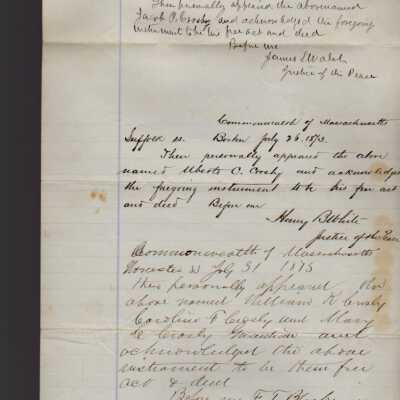 Then personally appeared the above named
Jacob P. Crosby and acknowledged the foregoing
instrument to be his free act and deed
Before me
James E Walsh
Justice of the Peace
Commonwealth of Massachusetts
Suffolk ss. Boston July 26 1873.
Then personally appeared the above
named Uberto C. Crosby and acknowledged
the foregoing instrument to be his free act
and deed Before me
Henry B White
Justice of the Peace
Commonwealth of Massachusetts
Worcester ss July 31 1873
Then personally appeared the
above named William H Crosby
Caroline F Crosby and Mary
E Crosby Guardian and
acknowledged the above
instrument to be their free
act & deed
Before me